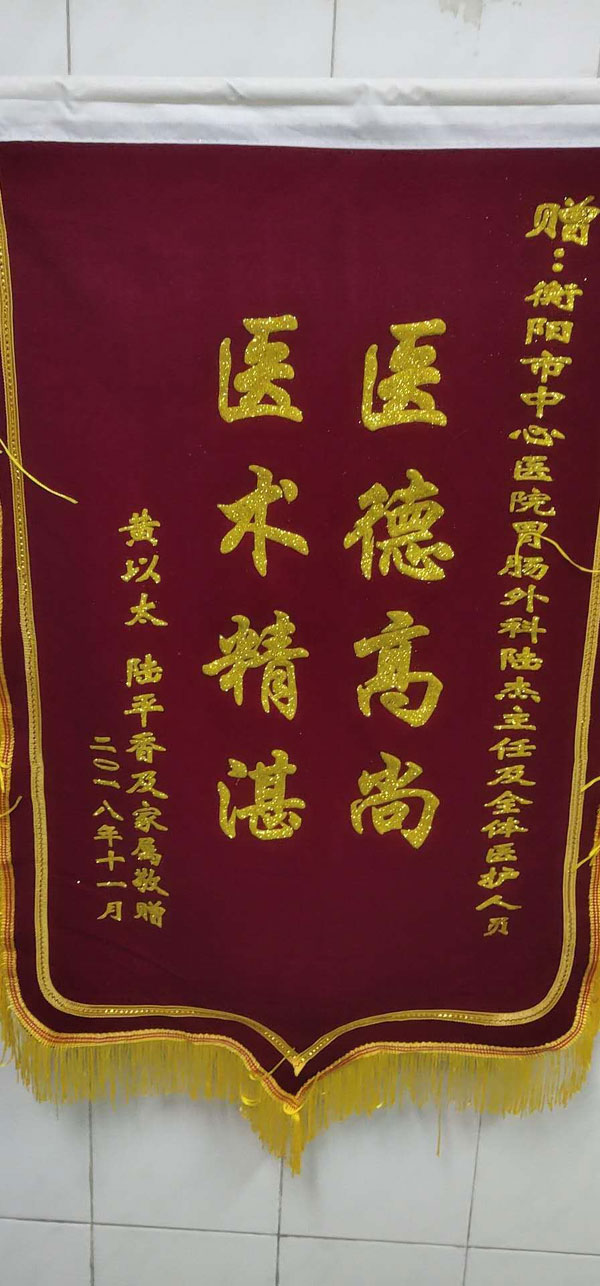 赠：衡阳市中心医院胃肠外科陆杰主任及全体医护人员
医德高尚
医术精湛
黄以太 陆平香及家属敬赠
二〇一八年十一月